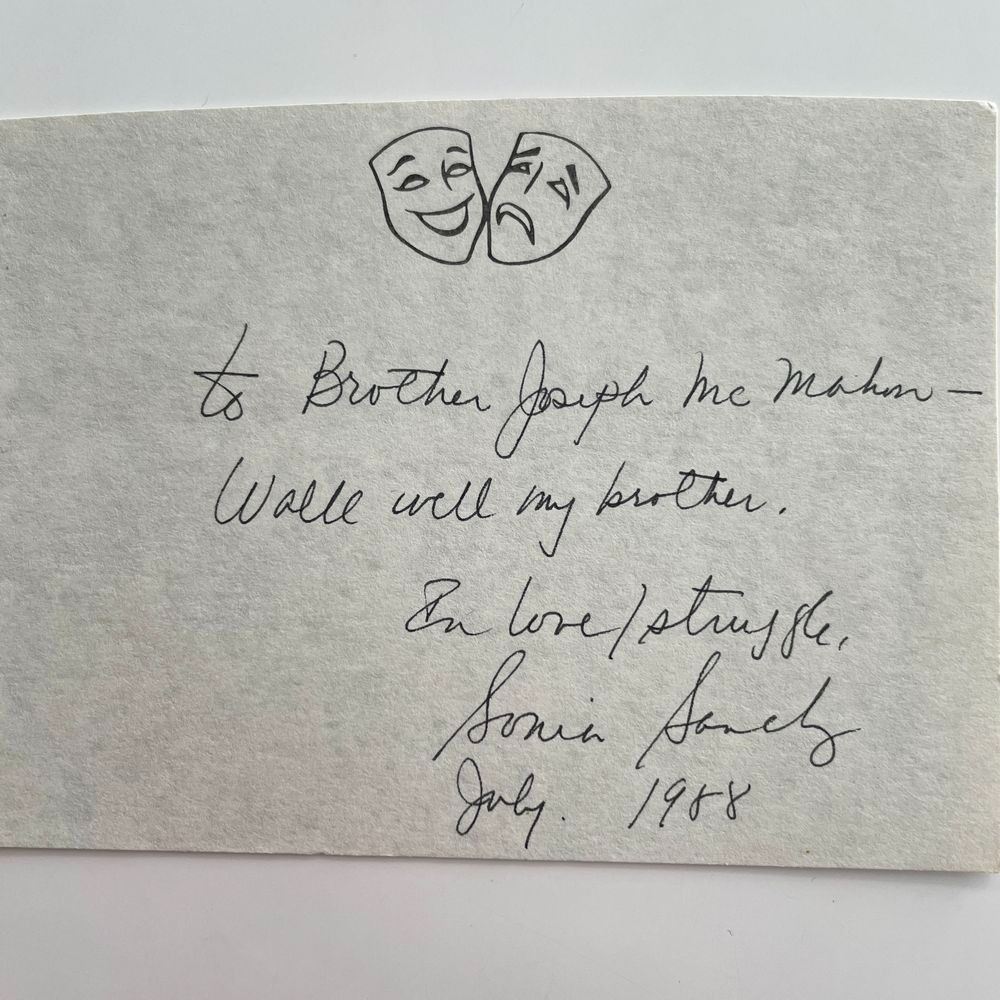 to Brother Joseph Mc Mahon—
Walk well my brother.
In love/struggle,
Sonia Sanchez
July. 1988